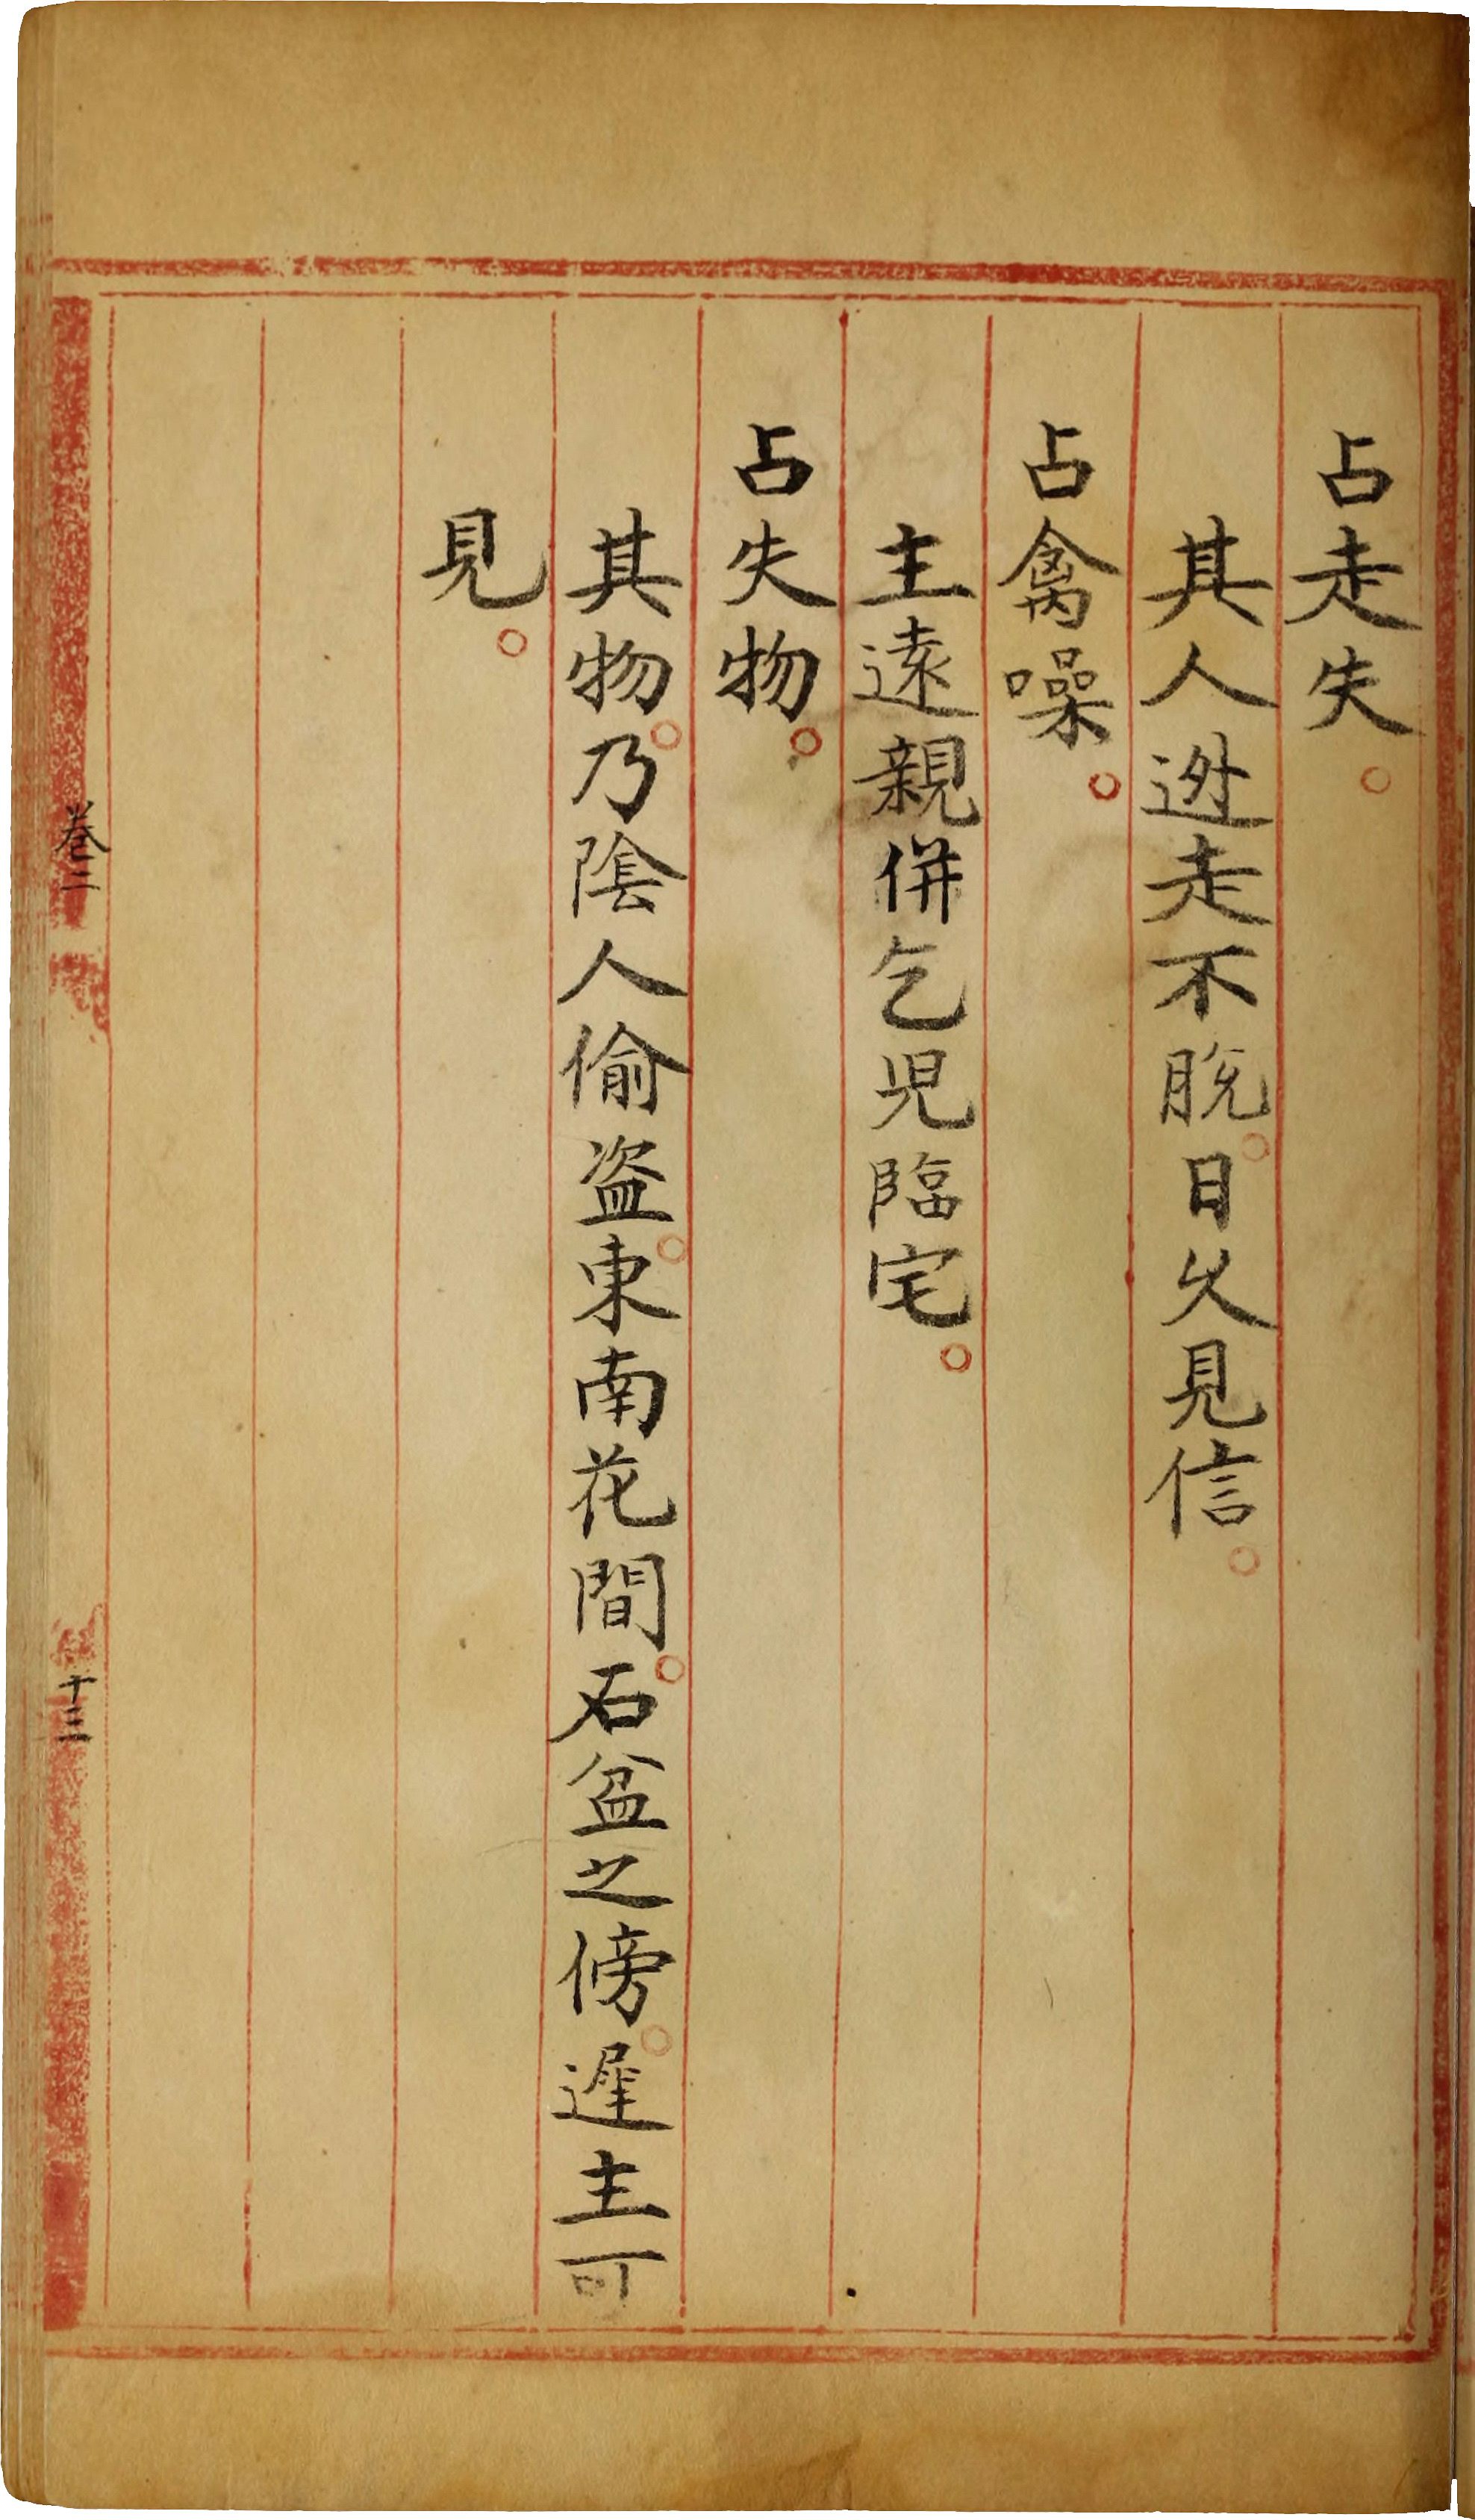 占走失。
其人逃走不脫。日久見信。
占禽噪。
主遠親併乞兒臨宅。
占失物。
其物。乃陰人偷盗。東南花間。石盆之傍。遲主可
見。
卷二
十三